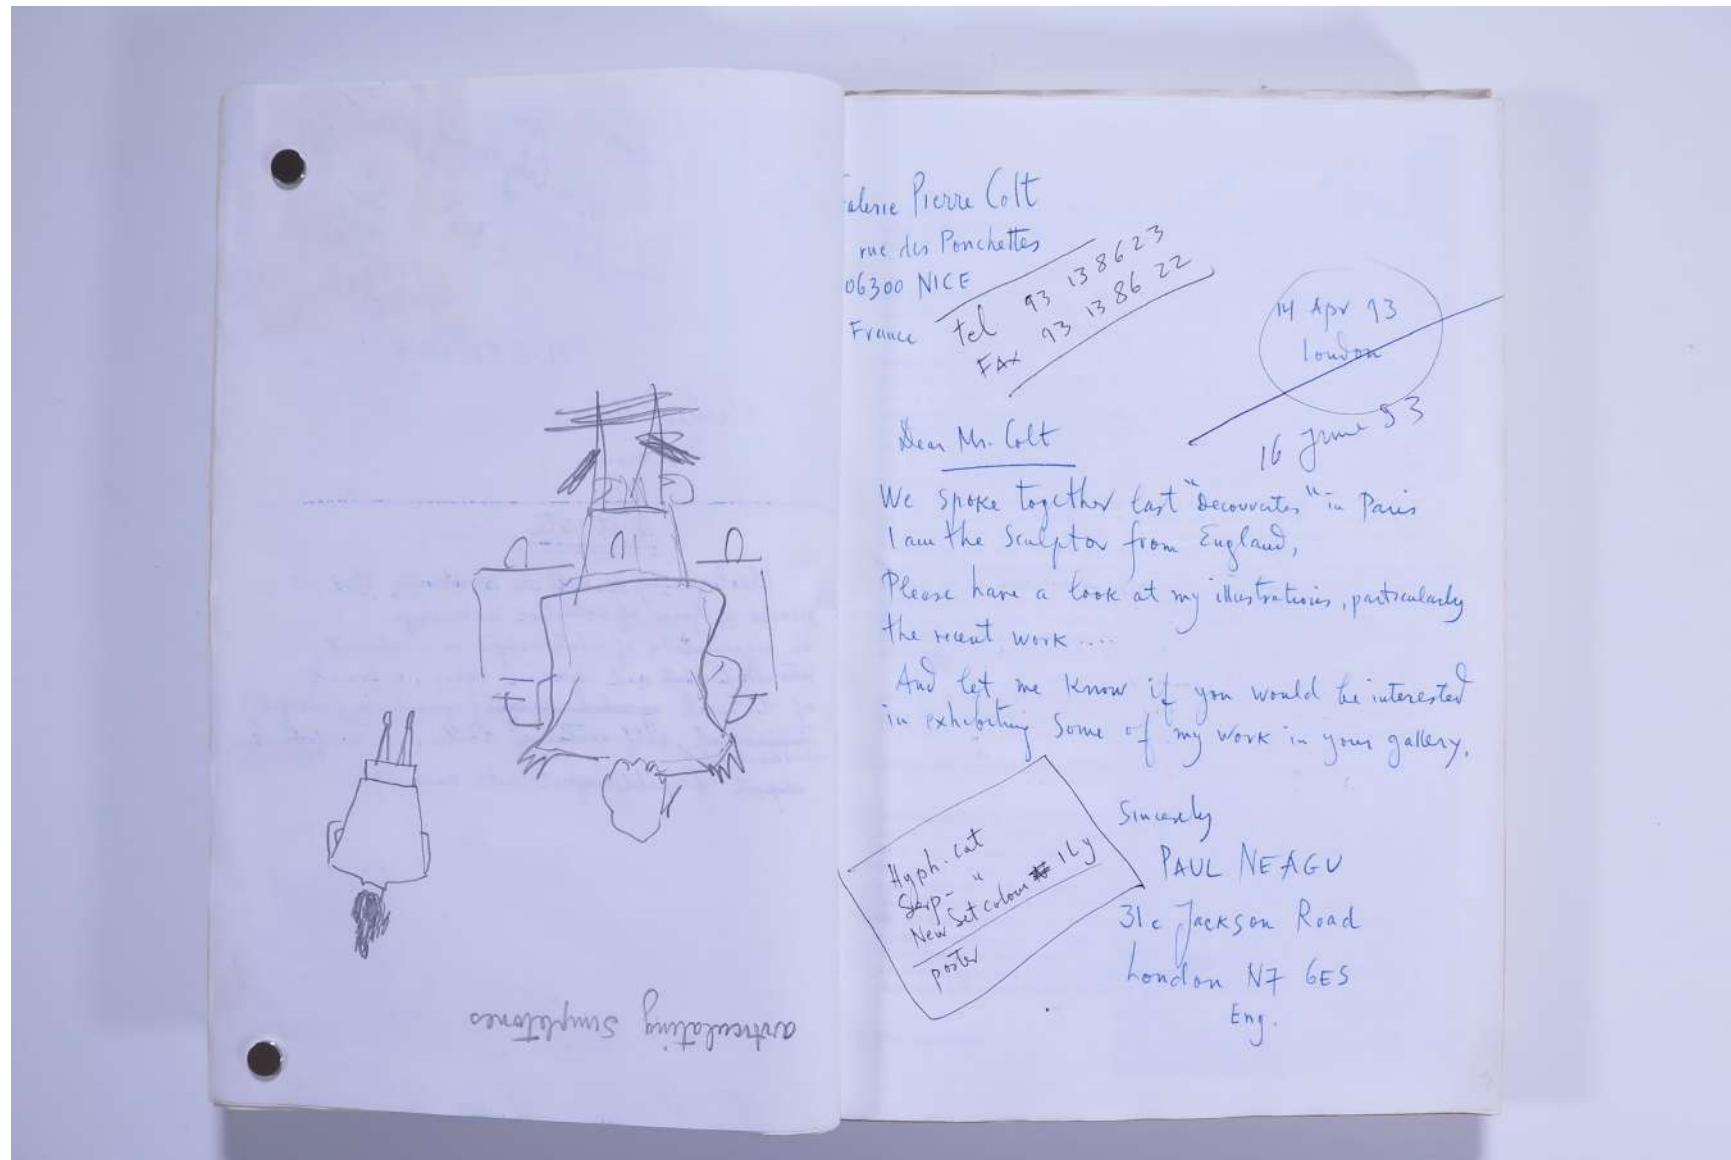 articulating simpletones
alerie Pierre Colt
rue des Ponchettes
06300 NICE
France
tel 93 138623
FAX 93 13 86 22
14 Apr 93
London
16 June 93
Dear Mr. Colt
We spoke together last "Decouvertes" in Paris
I am the Sculptor from England,
Please have a look at my illustrations, particularly
the recent work....
And let me know if you would be interested
in exhibiting some of my work in your gallery.
Sincerely
PAUL NEAGU
31c Jackson Road
London N7 6ES
Eng.
Hyph. cat
Serp- "
New Set colour
poster